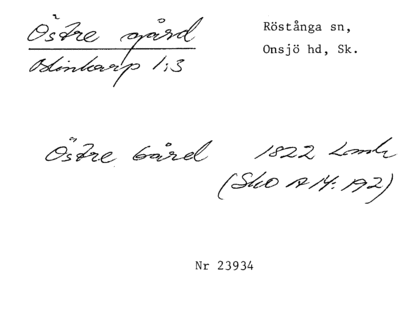 Östre gård
Röstånga sn,
Odinkarp 1:3
Onsjö hd, Sk.
Östre Gård 1822 Lmh
(Sko A M: 192)
Nr 23934